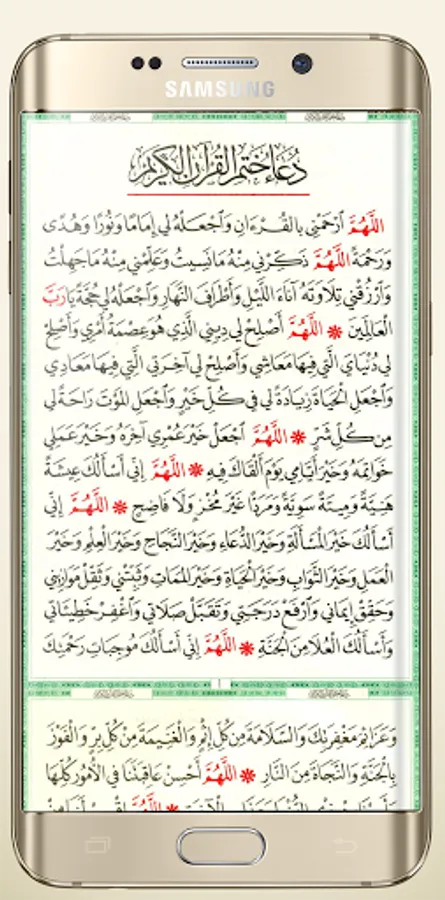 SAMSUNG
دُعَاءُ خَتْمِ القُرْآنِ الكَرِيْمِ
اللَّهُمَّ ٱرْحَمْنِي بالقُرْءَانِ وَٱجْعَلهُ لِي إِمَامًا وَنُورًا وَهُدًى
وَرَحْمَةً اللَّهُمَّ ذَكِّرْنِي مِنْهُ مَانَسِيتُ وَعَلِّمْنِي مِنْهُ مَاجَهِلْتُ
وَٱرْزُقْنِي تِلَاوَتَهُ آنَاءَ اللَّيْلِ وَأَطْرَافَ النَّهَارِ وَٱجْعَلْهُ لِي حُجَّةً يَارَبَّ
العَالَمِينَ * اللَّهُمَّ أَصْلِحْ لِي دِينِي الَّذِي هُوَ عِصْمَةُ أَمْرِي وَأَصْلِحْ
لِي دُنْيَايَ الَّتِي فِيهَا مَعَاشِي وَأَصْلِحْ لِي آخِرَتِي الَّتِي فِيهَا مَعَادِي
وَٱجْعَلِ الحَيَاةَ زِيَادَةً لِي فِي كُلِّ خَيْرٍ وَٱجْعَلِ المَوْتَ رَاحَةً لِي
مِن كُلِّ شَرٍّ * اللَّهُمَّ ٱجْعَلْ خَيْرَ عُمْرِي آخِرَهُ وَخَيْرَ عَمَلِي
خَوَاتِمَهُ وَخَيْرَ أَيَّامِي يَوْمَ أَلْقَاكَ فِيهِ * اللَّهُمَّ إِنِّي أَسْأَلُكَ عِيشَةً
هَنِيَّةً وَمِيتَةً سَوِيَّةً وَمَرَدًّا غَيْرَ مُخْزٍ وَلَا فَاضِحٍ * اللَّهُمَّ إِنِّي
أَسْأَلُكَ خَيْرَ المَسْأَلَةِ وَخَيْرَ الدُّعَاءِ وَخَيْرَ النَّجَاحِ وَخَيْرَ العِلْمِ وَخَيْرَ
العَمَلِ وَخَيْرَ الثَّوَابِ وَخَيْرَ الحَيَاةِ وَخَيْرَ المَمَاتِ وَثَبِّتْنِي وَثَقِّلْ مَوَازِينِي
وَحَقِّقْ إِيمَانِي وَٱرْفَعْ دَرَجَتِي وَتَقَبَّلْ صَلَاتِي وَٱغْفِرْ خَطِيئَاتِي
وَأَسْأَلُكَ العُلَا مِنَ الجَنَّةِ * اللَّهُمَّ إِنِّي أَسْأَلُكَ مُوجِبَاتِ رَحْمَتِكَ
وَعَزَائِمَ مَغْفِرَتِكَ وَالسَّلَامَةَ مِن كُلِّ إِثْمٍ وَالغَنِيمَةَ مِن كُلِّ بِرٍّ وَالفَوْزَ
بِالجَنَّةِ وَالنَّجَاةَ مِنَ النَّارِ * اللَّهُمَّ أَحْسِنْ عَاقِبَتَنَا فِي الأُمُورِ كُلِّهَا